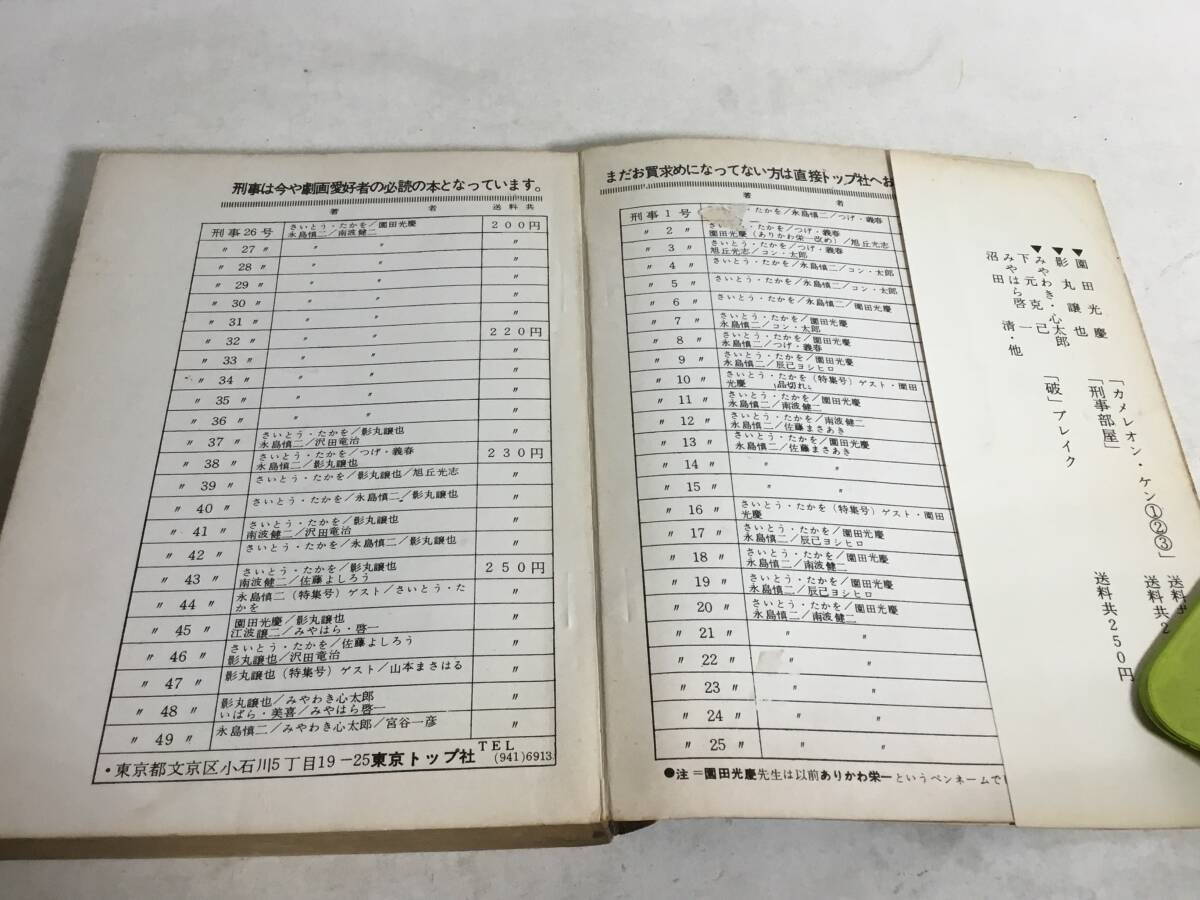 刑事は今や劇画愛好者の必読の本となっています。
著 者 送料共
刑事26号 さいとう・たかを/園田光慶 200円
永島慎二/南波健二
〃 27 〃 〃 〃 〃
〃 28 〃 〃 〃 〃
〃 29 〃 〃 〃 〃
〃 30 〃 〃 〃 〃
〃 31 〃 〃 〃 〃
〃 32 〃 〃 〃 220円
〃 33 〃 〃 〃 〃
〃 34 〃 〃 〃 〃
〃 35 〃 〃 〃 〃
〃 36 〃 〃 〃 〃
〃 37 〃 さいとう・たかを/影丸譲也 〃
永島慎二/沢田竜治
〃 38 〃 さいとう・たかを/つげ・義春 230円
永島慎二/影丸譲也
〃 39 〃 さいとう・たかを/影丸譲也/旭丘光志 〃
〃 40 〃 さいとう・たかを/永島慎二/影丸譲也 〃
〃 41 〃 さいとう・たかを/影丸譲也 〃
南波健二/沢田竜治
〃 42 〃 さいとう・たかを/永島慎二/影丸譲也 〃
〃 43 〃 さいとう・たかを/影丸譲也 250円
南波健二/佐藤よしろう
〃 44 〃 永島慎二(特集号)ゲスト/さいとう・た 〃
かを
〃 45 〃 園田光慶/影丸譲也 〃
江波譲二/みやはら・啓一
〃 46 〃 さいとう・たかを/佐藤よしろう 〃
影丸譲也/沢田竜治
〃 47 〃 影丸譲也(特集号)ゲスト/山本まさはる 〃
〃 48 〃 影丸譲也/みやわき心太郎 〃
いばら・美喜/みやはら啓一
〃 49 〃 永島慎二/みやわき心太郎/宮谷一彦 〃
・東京都文京区小石川5丁目19-25東京トップ社 TEL (941)6913
まだお買求めになってない方は直接トップ社へお
著 者
刑事1号 さいとう・たかを/永島慎二/つげ・義春
〃 2 〃 さいとう・たかを/つげ・義春
園田光慶(ありかわ栄一改め)/旭丘光志
〃 3 〃 さいとう・たかを/つげ・義春
旭丘光志/コン・太郎
〃 4 〃 さいとう・たかを/永島慎二/コン・太郎
〃 5 〃 さいとう・たかを/永島慎二/コン・太郎
〃 6 〃 さいとう・たかを/永島慎二/園田光慶
〃 7 〃 さいとう・たかを/園田光慶
永島慎二/コン・太郎
〃 8 〃 さいとう・たかを/園田光慶
永島慎二/つげ・義春
〃 9 〃 さいとう・たかを/園田光慶
永島慎二/辰己ヨシヒロ
〃 10 〃 さいとう・たかを(特集号)ゲスト・園田
光慶 品切れ
〃 11 〃 さいとう・たかを/園田光慶
永島慎二/南波健二
〃 12 〃 さいとう・たかを/南波健二
永島慎二/佐藤まさあき
〃 13 〃 さいとう・たかを/園田光慶
永島慎二/佐藤まさあき
〃 14 〃 〃 〃
〃 15 〃 〃 〃
〃 16 〃 さいとう・たかを(特集号)ゲスト・園田
光慶
〃 17 〃 さいとう・たかを/園田光慶
永島慎二/辰己ヨシヒロ
〃 18 〃 さいとう・たかを/園田光慶
永島慎二/南波健二
〃 19 〃 さいとう・たかを/園田光慶
永島慎二/辰己ヨシヒロ
〃 20 〃 さいとう・たかを/園田光慶
永島慎二/南波健二
〃 21 〃 〃 〃
〃 22 〃 〃 〃
〃 23 〃 〃 〃
〃 24 〃 〃 〃
〃 25 〃 〃 〃
●注=園田光慶先生は以前ありかわ栄一というペンネームで
▼園田光慶 「カメレオン・ケン①②③」 送料共
▼影丸譲也 「刑事部屋」 送料共2
▼みやわき・心太郎
下元克己
みやはら啓一 「破」ブレイク 送料共250円
沼田 清・他